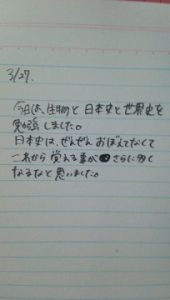 3/27.
今日は、生物と日本史と世界史を
勉強しました。
日本史は、ぜんぜんおぼえてなくて
一から覚える事がさらに多く
なるなと思いました。